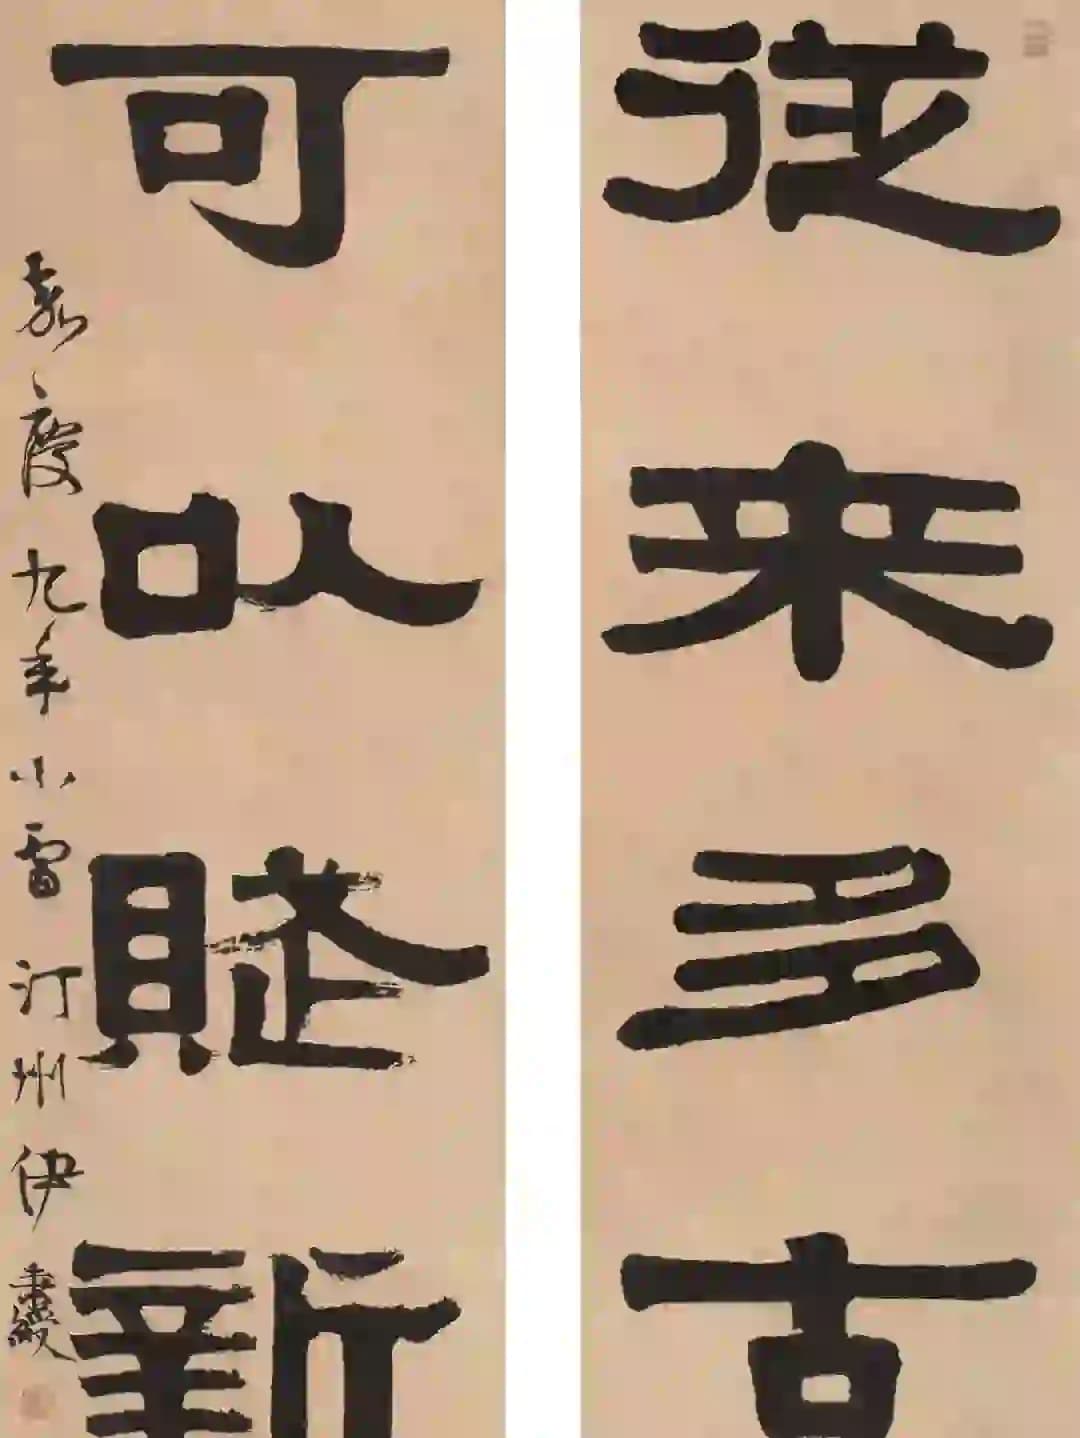 從来多古
可以賦新
嘉慶九年小雪汀州伊秉綬